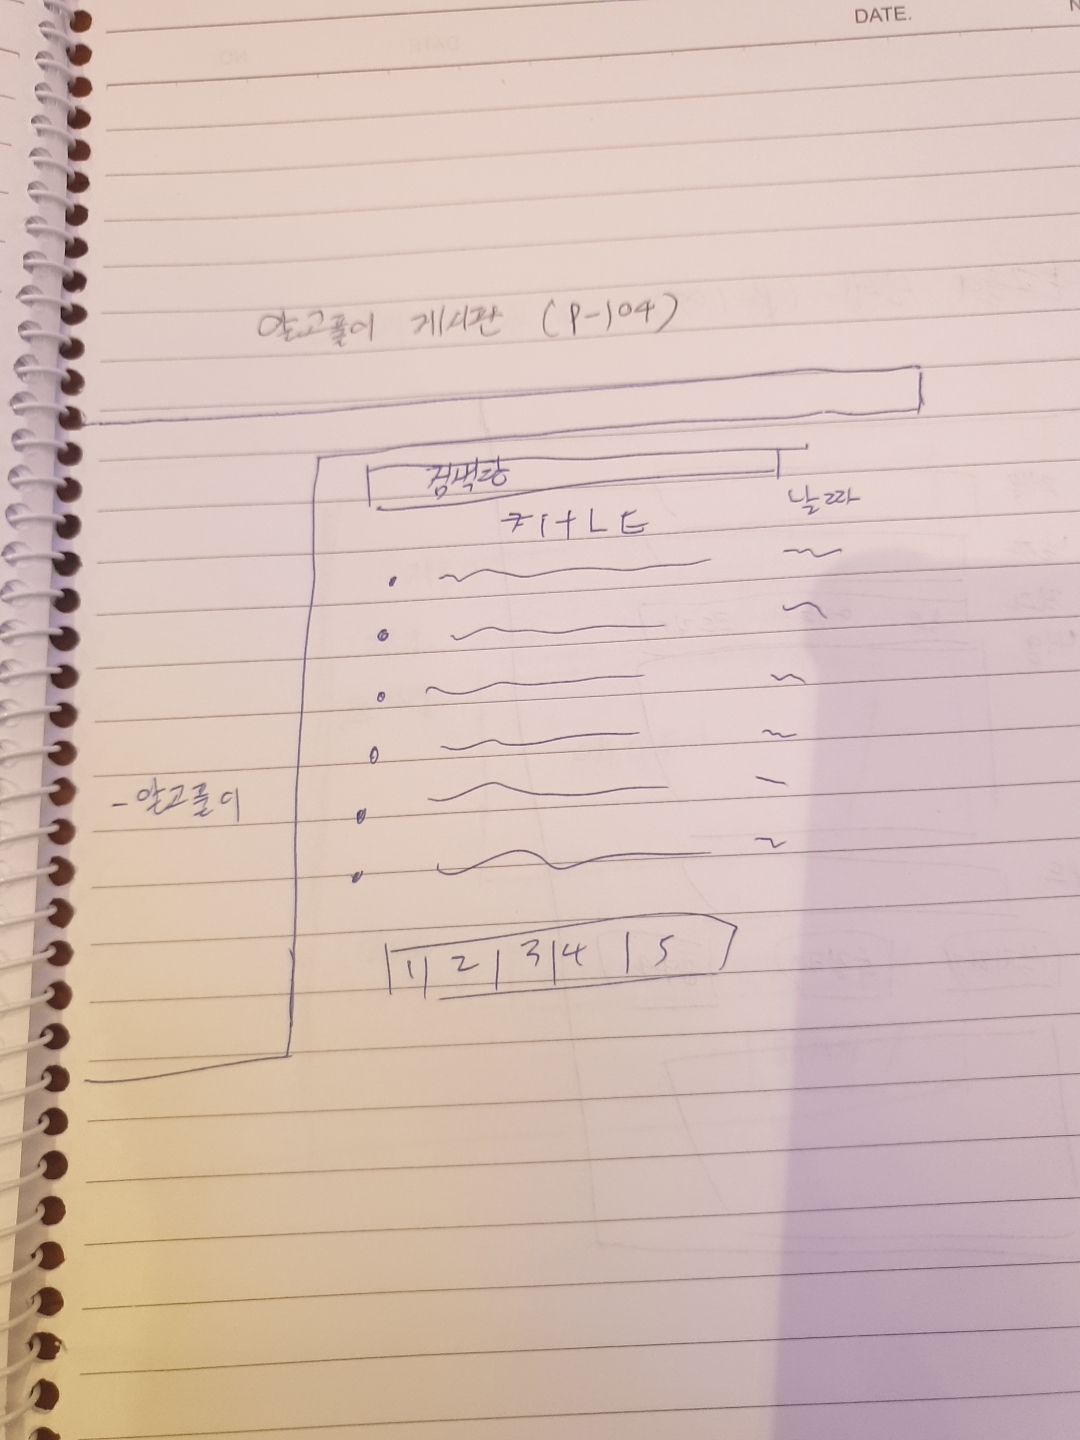 DATE.
알고풀이 게시판 (P-104)
검색창
TITLE
날짜
- 알고풀이
1 2 3 4 5